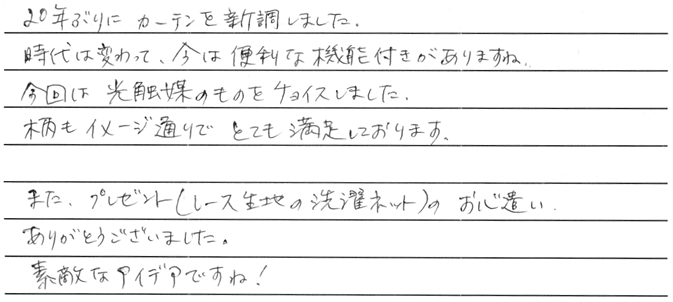 20年ぶりに カーテンを新調しました.
時代は変わって、今は便利な機能付きがありますね.
今回は 光触媒のものをチョイスしました.
柄もイメージ通りで とても満足しております.
また、プレゼント(レース生地の洗濯ネット)の お心遣い.
ありがとうございました。
素敵なアイデアですね!